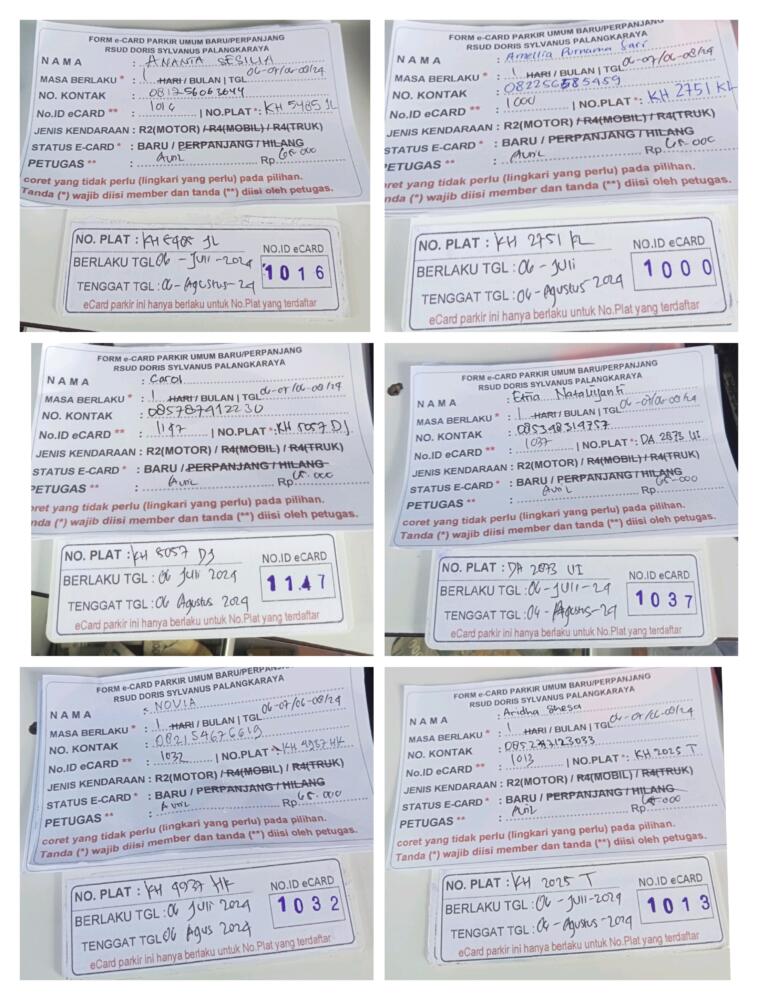 FORM e-CARD PARKIR UMUM BARU/PERPANJANG
RSUD DORIS SYLVANUS PALANGKARAYA
NAMA : ANANTA SESILIA
MASA BERLAKU * : 1 HARI / BULAN | TGL 06-07/06-08/24
NO. KONTAK : 081256063644
No.ID eCARD ** : 1016 | NO.PLAT * : KH 5485 JL
JENIS KENDARAAN : R2(MOTOR) / R4(MOBIL) / R4(TRUK)
STATUS E-CARD * : BARU / PERPANJANG / HILANG
PETUGAS ** : Avril Rp. 65.000
coret yang tidak perlu (lingkari yang perlu) pada pilihan.
Tanda (*) wajib diisi member dan tanda (**) diisi oleh petugas.
NO. PLAT : KH 5485 JL
NO.ID eCARD
BERLAKU TGL : 06 - Juli - 2024
1016
TENGGAT TGL : 06 - Agustus - 24
eCard parkir ini hanya berlaku untuk No.Plat yang terdaftar
FORM e-CARD PARKIR UMUM BARU/PERPANJANG
RSUD DORIS SYLVANUS PALANGKARAYA
NAMA : Amellia Purnama Sari
MASA BERLAKU * : 1 HARI / BULAN | TGL 06-07/06-08/24
NO. KONTAK : 082256585459
No.ID eCARD ** : 1000 | NO.PLAT * : KH 2751 KL
JENIS KENDARAAN : R2(MOTOR) / R4(MOBIL) / R4(TRUK)
STATUS E-CARD * : BARU / PERPANJANG / HILANG
PETUGAS ** : Avril Rp. 65.000
coret yang tidak perlu (lingkari yang perlu) pada pilihan.
Tanda (*) wajib diisi member dan tanda (**) diisi oleh petugas.
NO. PLAT : KH 2751 KL
NO.ID eCARD
BERLAKU TGL : 06 - Juli
1000
TENGGAT TGL : 06 - Agustus - 2024
eCard parkir ini hanya berlaku untuk No.Plat yang terdaftar
FORM e-CARD PARKIR UMUM BARU/PERPANJANG
RSUD DORIS SYLVANUS PALANGKARAYA
NAMA : Carol
MASA BERLAKU * : 1 HARI / BULAN | TGL 06-07/06-08/24
NO. KONTAK : 085787912230
No.ID eCARD ** : 1147 | NO.PLAT * : KH 5057 DJ
JENIS KENDARAAN : R2(MOTOR) / R4(MOBIL) / R4(TRUK)
STATUS E-CARD * : BARU / PERPANJANG / HILANG
PETUGAS ** : Avril Rp. 65.000
coret yang tidak perlu (lingkari yang perlu) pada pilihan.
nda (*) wajib diisi member dan tanda (**) diisi oleh petugas.
NO. PLAT : KH 5057 DJ
NO.ID eCARD
BERLAKU TGL : 06 Juli 2024
1147
TENGGAT TGL : 06 Agustus 2024
eCard parkir ini hanya berlaku untuk No.Plat yang terdaftar
FORM e-CARD PARKIR UMUM BARU/PERPANJANG
RSUD DORIS SYLVANUS PALANGKARAYA
NAMA : Nataliyanti
MASA BERLAKU * : 1 HARI / BULAN | TGL 06-07/06-08/24
NO. KONTAK : 085348314757
No.ID eCARD ** : 1037 | NO.PLAT * : DA 2873 UI
JENIS KENDARAAN : R2(MOTOR) / R4(MOBIL) / R4(TRUK)
STATUS E-CARD * : BARU / PERPANJANG / HILANG
PETUGAS ** : Avril Rp. 65.000
coret yang tidak perlu (lingkari yang perlu) pada pilihan.
Tanda (*) wajib diisi member dan tanda (**) diisi oleh petugas.
NO. PLAT : DA 2873 UI
NO.ID eCARD
BERLAKU TGL : 06 - Juli - 24
1037
TENGGAT TGL : 06 - Agustus - 24
eCard parkir ini hanya berlaku untuk No.Plat yang terdaftar
FORM e-CARD PARKIR UMUM BARU/PERPANJANG
RSUD DORIS SYLVANUS PALANGKARAYA
NAMA : NOVIA
MASA BERLAKU * : 1 HARI / BULAN | TGL 06-07/06-08/24
NO. KONTAK : 082154676619
No.ID eCARD ** : 1032 | NO.PLAT * : KH 4937 HK
JENIS KENDARAAN : R2(MOTOR) / R4(MOBIL) / R4(TRUK)
STATUS E-CARD * : BARU / PERPANJANG / HILANG
PETUGAS ** : Avril Rp. 65.000
coret yang tidak perlu (lingkari yang perlu) pada pilihan.
Tanda (*) wajib diisi member dan tanda (**) diisi oleh petugas.
NO. PLAT : KH 4937 HK
NO.ID eCARD
BERLAKU TGL : 06 Juli 2024
1032
TENGGAT TGL : 06 Agus 2024
eCard parkir ini hanya berlaku untuk No.Plat yang terdaftar
FORM e-CARD PARKIR UMUM BARU/PERPANJANG
RSUD DORIS SYLVANUS PALANGKARAYA
NAMA : Aridha Shesa
MASA BERLAKU * : 1 HARI / BULAN | TGL 06-07/06-08/24
NO. KONTAK :
No.ID eCARD ** : 1013 | NO.PLAT * : KH 2025 T
JENIS KENDARAAN : R2(MOTOR) / R4(MOBIL) / R4(TRUK)
STATUS E-CARD * : BARU / PERPANJANG / HILANG
PETUGAS ** : Avril Rp. 65.000
coret yang tidak perlu (lingkari yang perlu) pada pilihan.
Tanda (*) wajib diisi member dan tanda (**) diisi oleh petugas.
NO. PLAT : KH 2025 T
NO.ID eCARD
BERLAKU TGL : 06 - Juli - 2024
1013
TENGGAT TGL : 06 - Agustus - 2024
eCard parkir ini hanya berlaku untuk No.Plat yang terdaftar